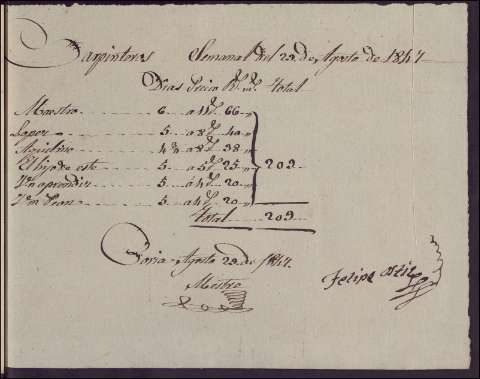 Carpinteros Semana del 29 de Agosto de 1847
Dias Precio Rs. ms. total
Maestro 6 a 11 rs. 66
Lopez 5 a 8 rs. 40
Agustino 4 a 8 rs. 38
El hijo de este 5 a 5 rs. 25 209
Un aprendiz 5 a 4 rs. 20
Un Peon 5 a 4 rs. 20
total 209
Soria Agosto 29 de 1847
Mestro
Felipe Ortiz